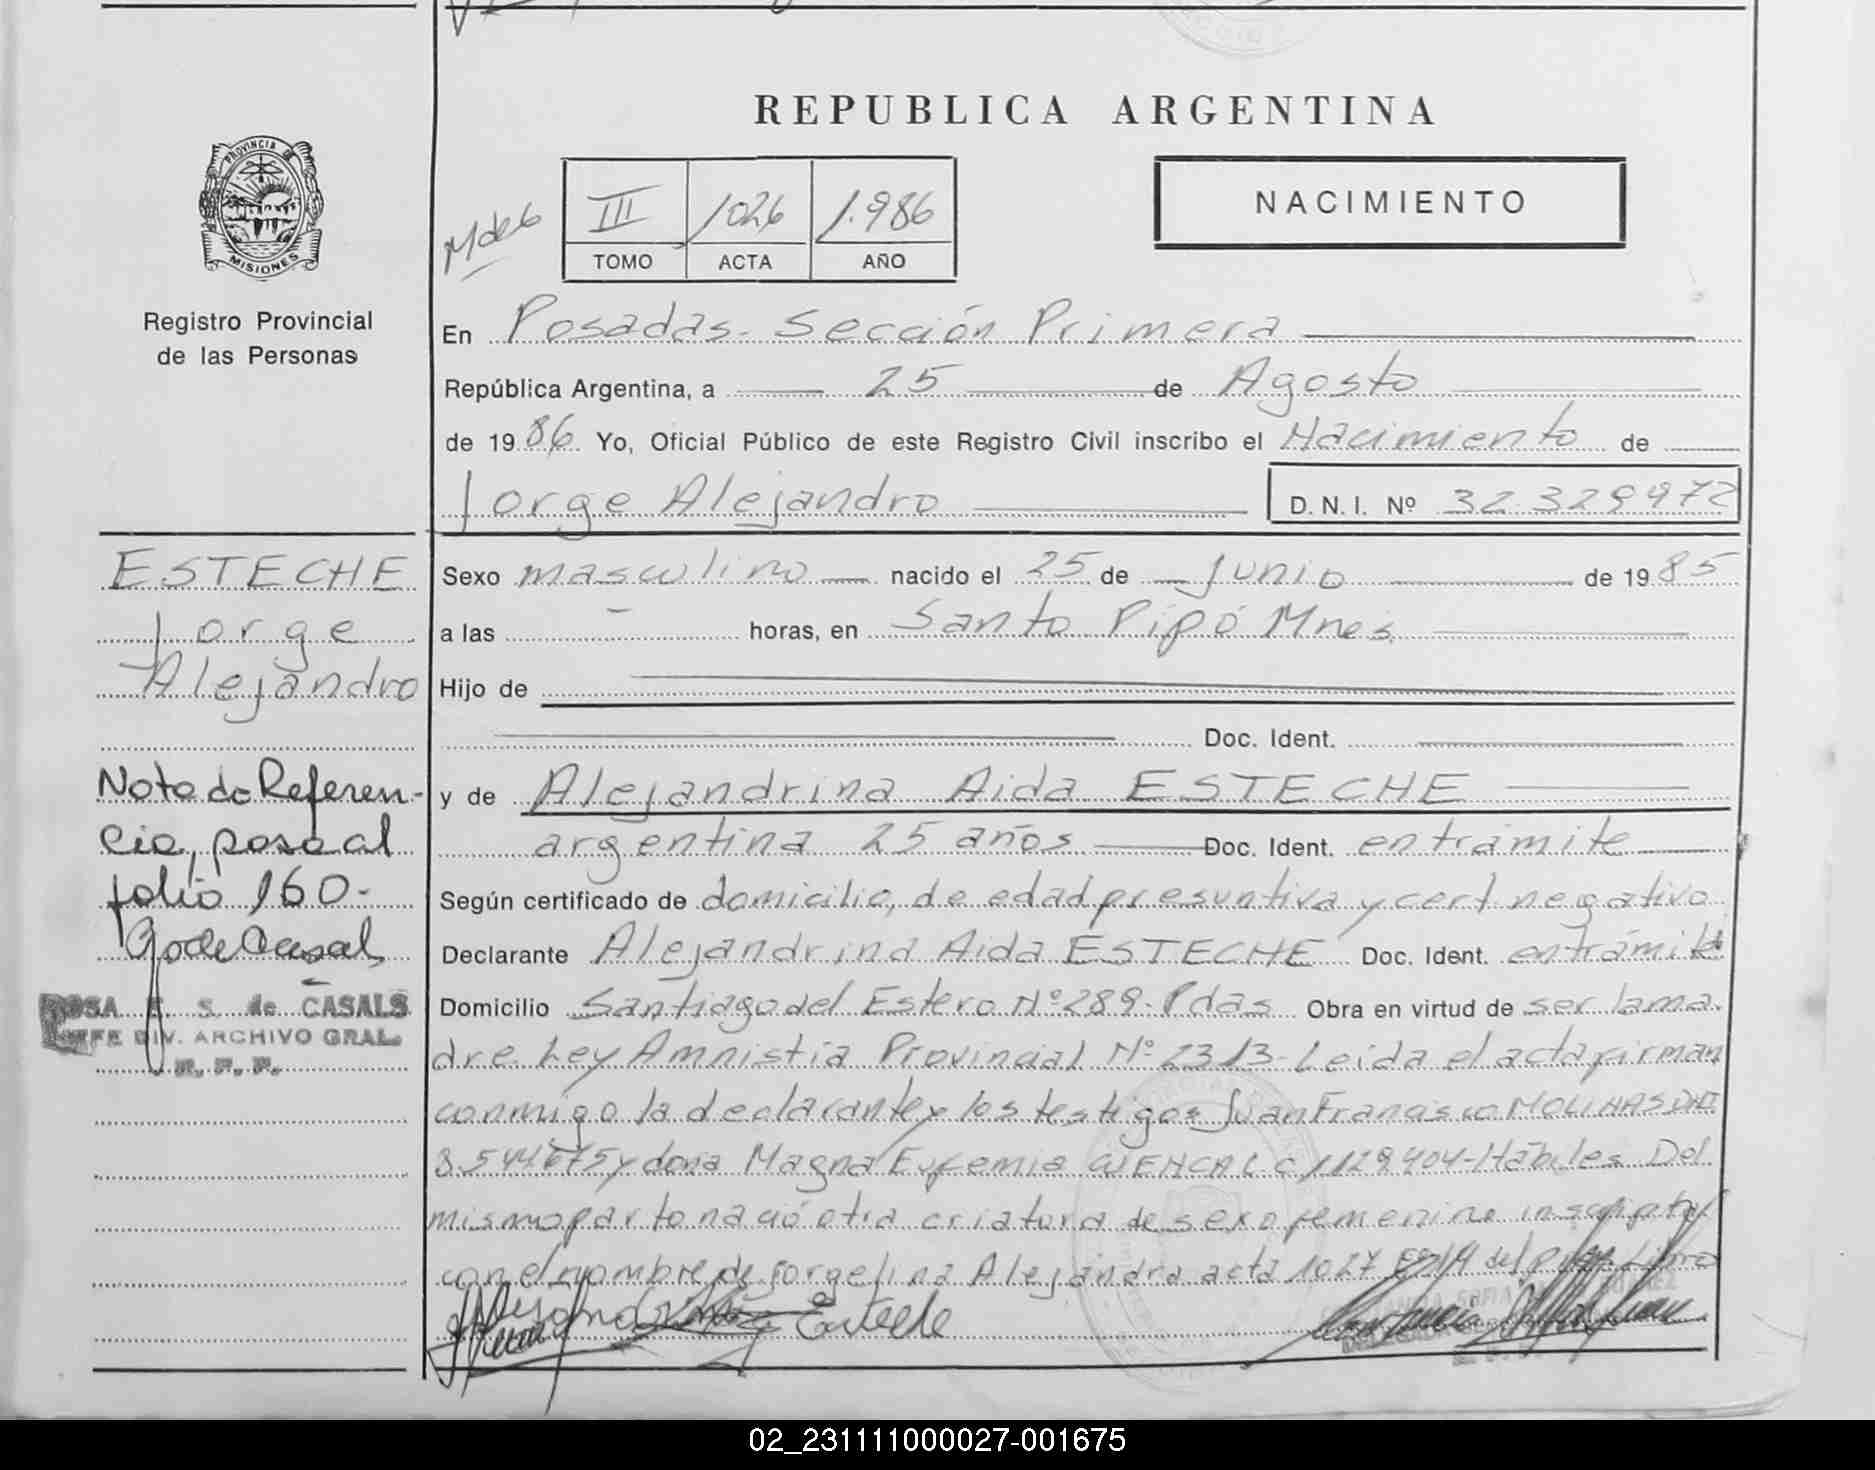 REPUBLICA ARGENTINA
PROVINCIA DE
MISIONES
Registro Provincial
de las Personas
III 1026 1.986
TOMO ACTA AÑO
NACIMIENTO
En Posadas - Sección Primera
República Argentina, a 25 de Agosto
de 19 86 Yo, Oficial Público de este Registro Civil inscribo el Nacimiento de
Jorge Alejandro
D. N. I. Nº 32.329.972
ESTECHE
Jorge
Alejandro
Nota de Referen-
cia, pasa al
folio 160.-
ROSA E. S. de CASALS
JEFE DIV. ARCHIVO GRAL.
R. P. P.
Sexo masculino nacido el 25 de Junio de 19 85
a las - horas, en Santo Pipó Mnes.
Hijo de
Doc. Ident.
y de Alejandrina Aida ESTECHE
argentina 25 años Doc. Ident. en trámite
Según certificado de domicilio, de edad presuntiva y cert. negativo
Declarante Alejandrina Aida ESTECHE Doc. Ident. en trámite
Domicilio Santiago del Estero Nº 289 - Pdas Obra en virtud de ser la ma
dre Ley Amnistia Provincial Nº 2313 - Leida el acta firman
conmigo la declarante y los testigos Juan Francisco MOLINAS DNI
8544675 y doña Magna Eufemia Hábiles Del
mismo parto nació otra criatura de sexo femenino inscripta
con el nombre de Jorgelina Alejandra acta 1027 del Libro
Esteche
02_231111000027-001675